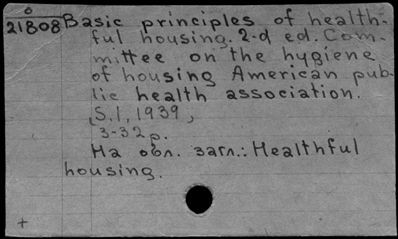 0
21808 Basic principles of health-
ful housing. 2-d ed. Com-
mittee on the hygiene
of housing American pub-
lic health association.
[S.l, 1939,
3-32 p.
На обл. загл.: Healthful
housing.
+